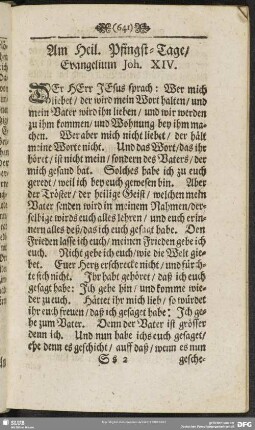 (641)
Am Heil. Pfingst-Tage/
Evangelium Joh. XIV.
DEr HErr JEsus sprach: Wer mich
liebet/ der wird mein Wort halten/ und
mein Vater wird ihn lieben/ und wir werden
zu ihm kommen/ und Wohnung bey ihm ma-
chen. Wer aber mich nicht liebet/ der hält
meine Worte nicht. Und das Wort/ das ihr
höret/ ist nicht mein/ sondern des Vaters/ der
mich gesand hat. Solches habe ich zu euch
geredt/ weil ich bey euch gewesen bin. Aber
der Tröster/ der heilige Geist/ welchen mein
Vater senden wird in meinem Nahmen/ der-
selbige wirds euch alles lehren/ und euch erin-
nern alles deß/ das ich euch gesagt habe. Den
Frieden lasse ich euch/ meinen Frieden gebe ich
euch. Nicht gebe ich euch/ wie die Welt gie-
bet. Euer Hertz erschrecke nicht/ und fürch-
te sich nicht. Ihr habt gehöret/ daß ich euch
gesagt habe: Ich gehe hin/ und komme wie-
der zu euch. Hättet ihr mich lieb/ so würdet
ihr euch freuen/ daß ich gesaget habe: Ich ge-
he zum Vater. Denn der Vater ist grösser
denn ich. Und nun habe ichs euch gesaget/
ehe denn es geschicht/ auff daß/ wenn es nun
S s 2 gesche-